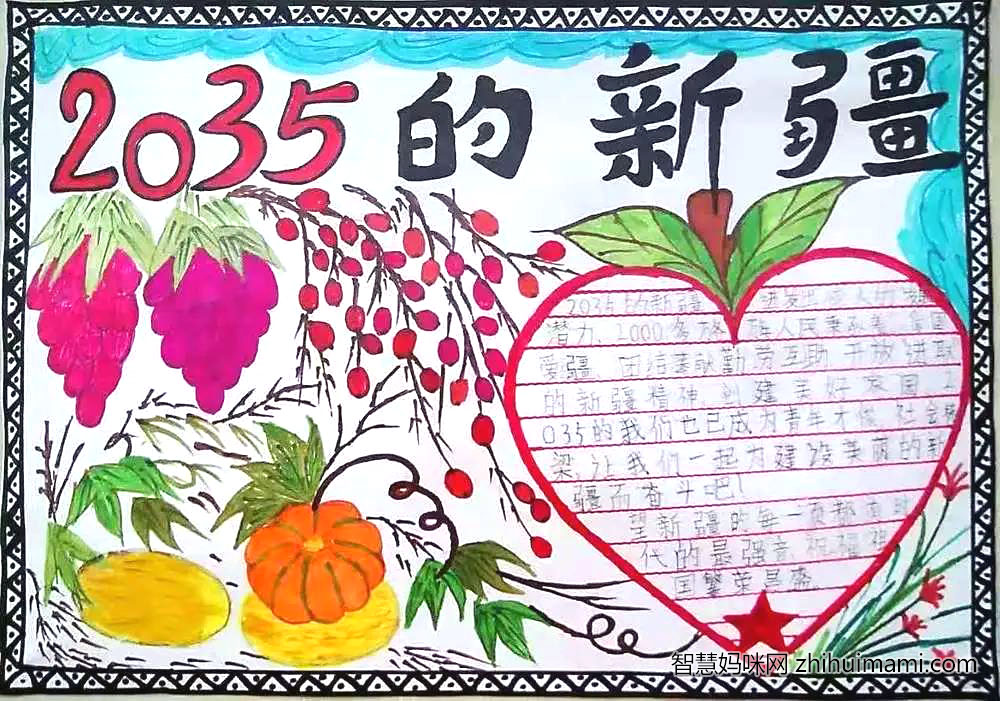 2035的新疆
2035的新疆 迸发出 人的发展
潜力、2000多 族人民秉承着
爱疆、团结奉献、勤劳互助、开放进取
的新疆精神,创建美好家园,2
035的我们也已成为青年才俊,社会栋
梁,让我们一起为建设美丽的新
疆而奋斗吧!
望新疆的每一页都有时
代的最强音,祝福祖
国繁荣昌盛
智慧妈咪网 zhihuimami.com